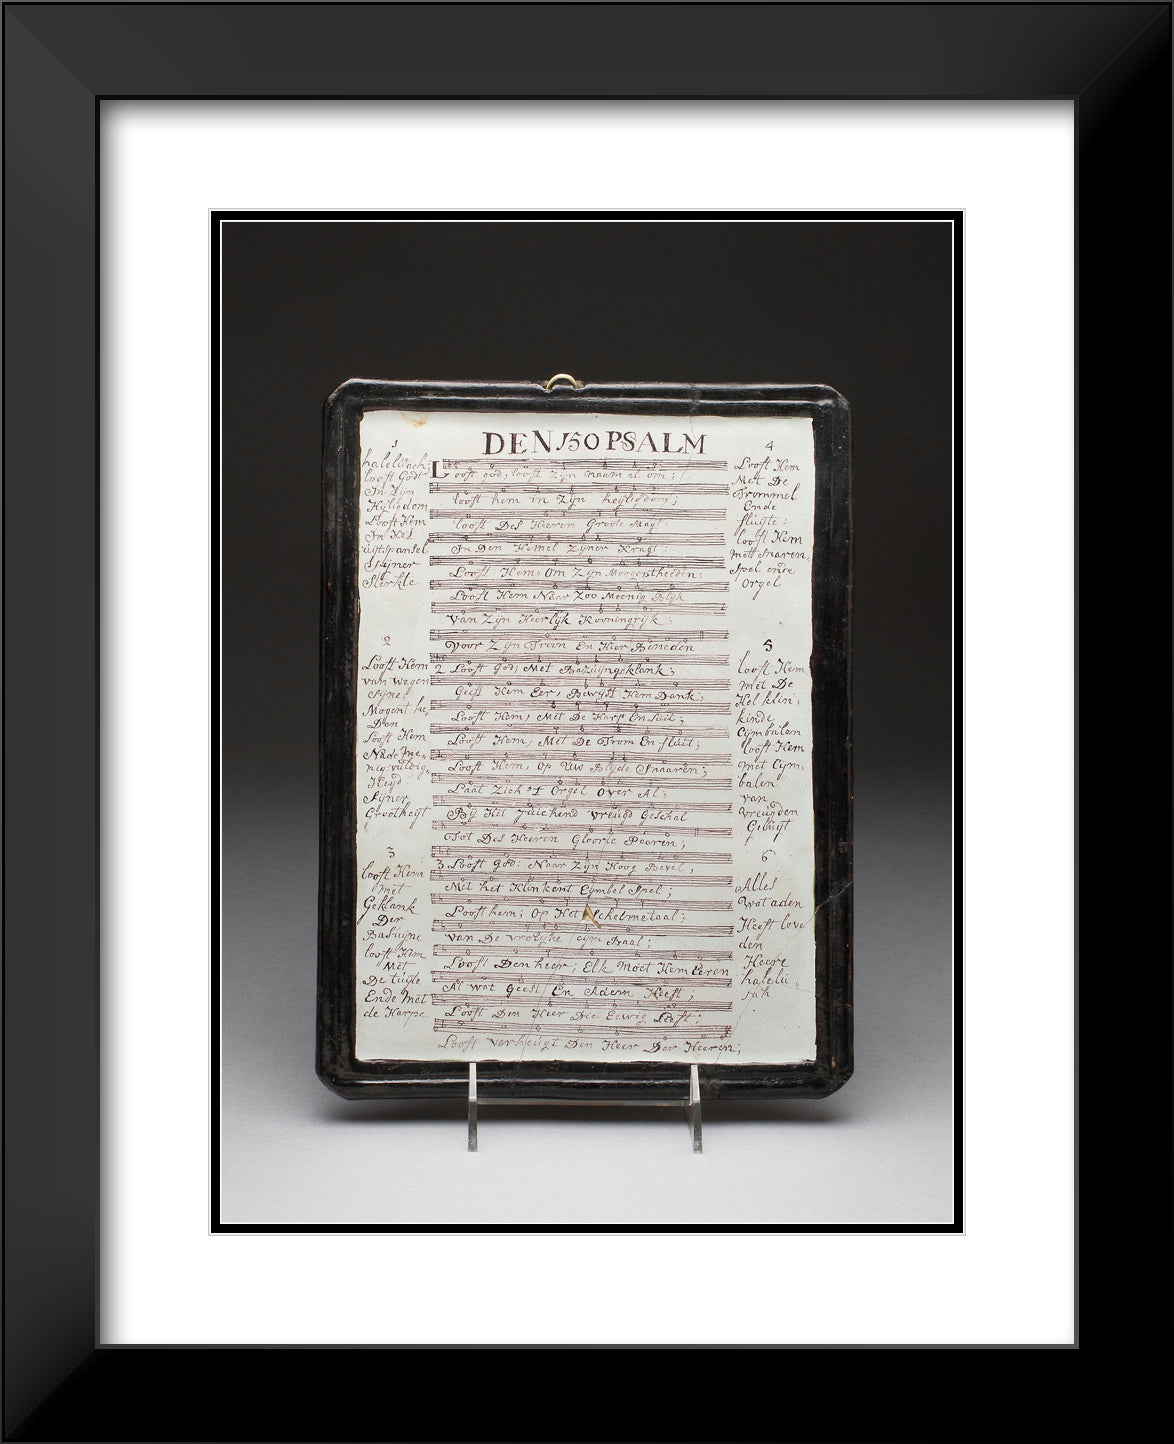 DEN 150 PSALM
1
haleluiach;
looft Godt
In Zyn
Hyligdom
Looft Hem
In Het
uijtspansel
Sijner
Sterkte
2
Looft Hem
van wegen
sijne;
Mogent he,
Den
Looft Hem
Na de me,
nig vuldig,
Heijd
Sijner
Grootheijt
3
looft Hem
met
Geklank
Der
Basuijne
looft Hem
Met
De luijte
Ende met
de Harpe
Looft god, looft Zijn naam al om;
looft hem in Zijn heyligdom;
looft Des Heeren Groote Magt
In Den Hemel Zijner Kragt;
Looft Hem, Om Zijn Moogentheeden;
Looft Hem Naar Zoo Meenig Blyk
van Zyn Heerlyk Kooningrijk
Voor Zyn Troon En Hier Beneden
2 Looft God; Met Bazuijngeklank;
Geeft Hem Eer, Bewyst Hem Dank;
Looft Hem, Met De Harp En Luit;
Looft Hem, Met De Trom En fluit;
Looft Hem, Op Uw Blyde Snaaren;
Laat Zich 't Orgel Over Al;
By Het Juichend vreugd Geschal
Tot Des Heeren Gloorie Paaren;
3 Looft God: Naar Zijn Hoog Bevel,
Met het Klinkent Cymbel Spel;
Looft hem; Op Het Schelmetaal;
van De vrolyke Cym Baal;
Looft Den heer; Elk Moet Hem Eeren
Al wat Geest En Adem Heeft;
Looft Den Heer Die Eewig Leeft;
Looft verheugt Den Heer Der Heeren;
4
Looft Hem
Met De
Trommel
Ende
fluijte;
looft Hem
mett Snaren,
Spel ende
Orgel
5
looft Hem
met De
Hel klin;
kinde
Cymbalen
looft Hem
met Cym,
balen
van
vreugden
Geluyt
6
Alles
Wat aden
Heeft love
den
Heere
halelu,
jah